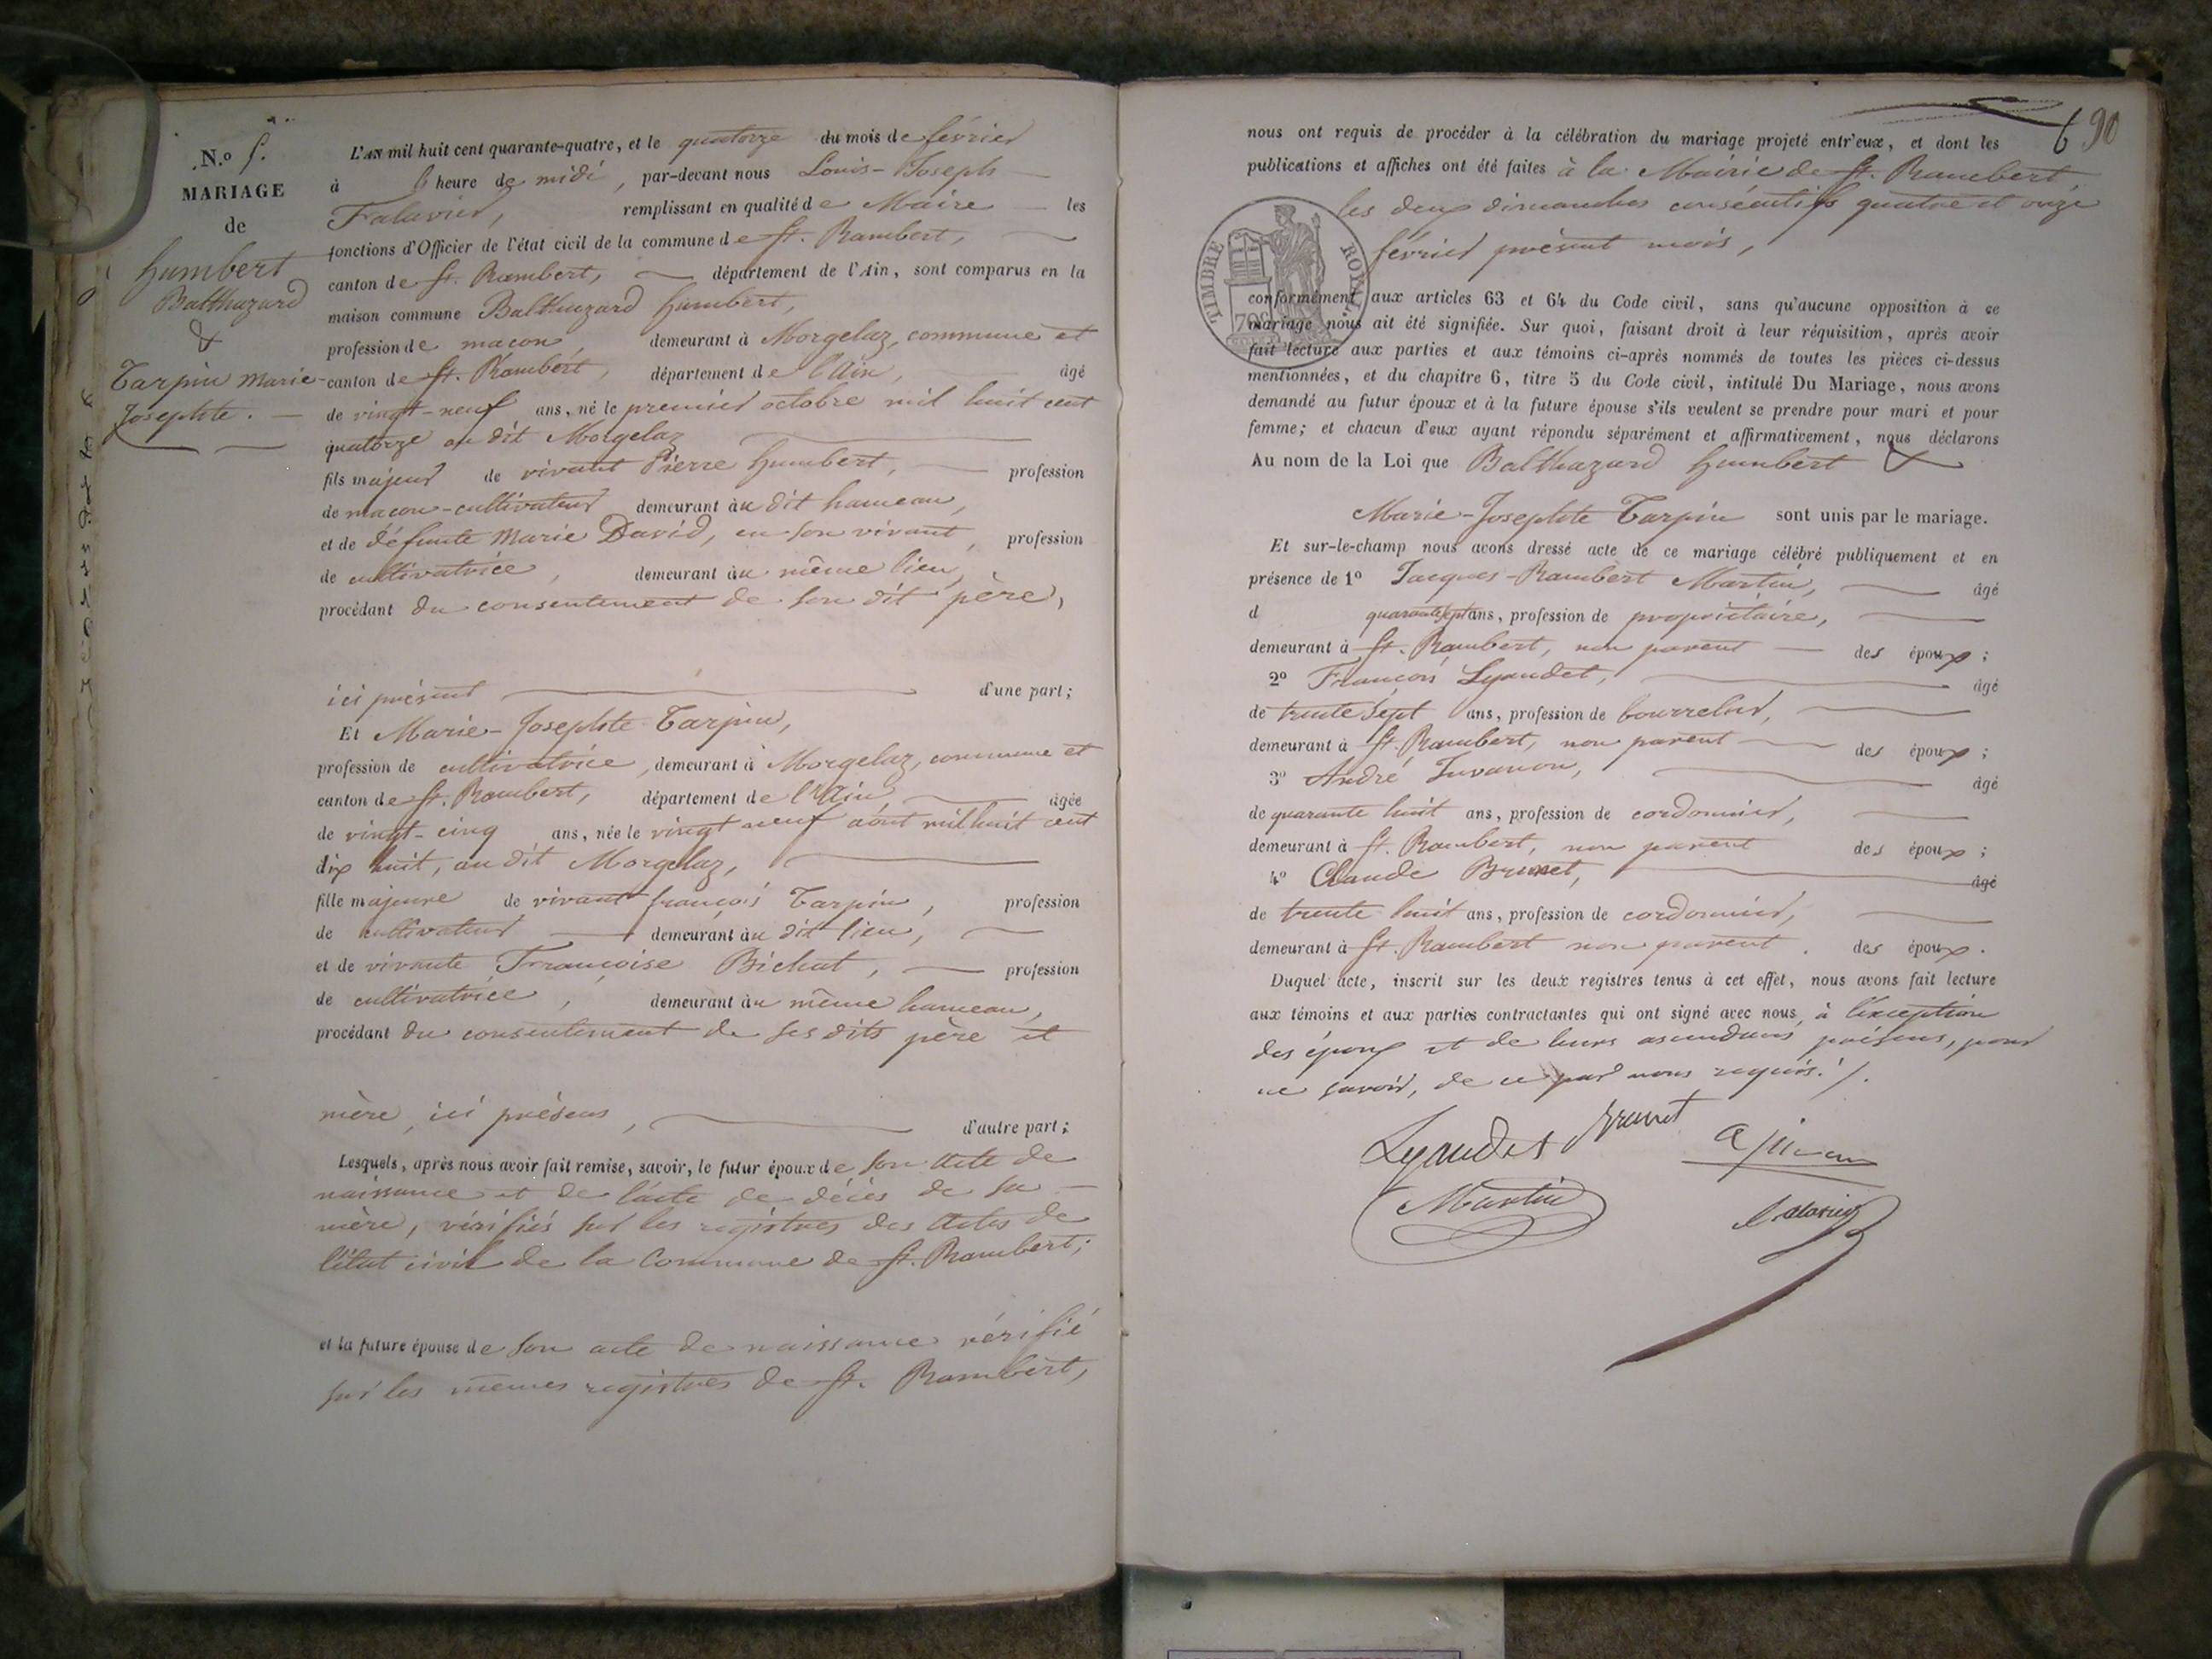 N.o 5.
MARIAGE
de
humbert
Balthazard
&
Tarpin Marie-
Josephte. —
L'AN mil huit cent quarante-quatre, et le quatorze du mois de février
à heure de midi, par-devant nous Louis-Joseph
Falavier, remplissant en qualité de Maire les
fonctions d'Officier de l'état civil de la commune de St. Rambert,
canton de St. Rambert, département de l'Ain, sont comparus en la
maison commune Balthazard humbert,
profession de maçon, demeurant à Morgelaz, commune et
canton de St. Rambert, département de l'Ain, âgé
de vingt-neuf ans, né le premier octobre mil huit cent
quatorze au dit Morgelaz
fils majeur de vivant Pierre humbert, profession
de maçon-cultivateur demeurant au dit hameau,
et de défunte Marie David, en son vivant, profession
de cultivatrice, demeurant au même lieu,
procédant du consentement de son dit père,
ici présent d'une part;
Et Marie-Josephte Tarpin,
profession de cultivatrice, demeurant à Morgelaz, commune et
canton de St. Rambert, département de l'Ain, âgée
de vingt-cinq ans, née le vingt neuf août mil huit cent
dix huit, au dit Morgelaz,
fille majeure de vivant françois Tarpin, profession
de cultivateur demeurant au dit lieu,
et de vivante Françoise Bichat, profession
de cultivatrice, demeurant au même hameau,
procédant du consentement de ses dits père et
mère, ici présens, d'autre part;
Lesquels, après nous avoir fait remise, savoir, le futur époux de son acte de
naissance et de l'acte de décès de sa
mère, vérifiés sur les registres des actes de
l'état civil de la Commune de St. Rambert;
et la future épouse de son acte de naissance vérifié
sur les mêmes registres de St. Rambert,
6 90
nous ont requis de procéder à la célébration du mariage projeté entr'eux, et dont les
publications et affiches ont été faites à la Mairie de St. Rambert,
les deux dimanches consécutifs quatre et onze
février présent mois,
TIMBRE ROYAL
70c
conformément aux articles 63 et 64 du Code civil, sans qu'aucune opposition à ce
mariage nous ait été signifiée. Sur quoi, faisant droit à leur réquisition, après avoir
fait lecture aux parties et aux témoins ci-après nommés de toutes les pièces ci-dessus
mentionnées, et du chapitre 6, titre 5 du Code civil, intitulé Du Mariage, nous avons
demandé au futur époux et à la future épouse s'ils veulent se prendre pour mari et pour
femme; et chacun d'eux ayant répondu séparément et affirmativement, nous déclarons
Au nom de la Loi que Balthazard humbert &
Marie-Josephte Tarpin sont unis par le mariage.
Et sur-le-champ nous avons dressé acte de ce mariage célébré publiquement et en
présence de 1o Jacques-Rambert Martin, âgé
d quarante sept ans, profession de propriétaire,
demeurant à St. Rambert, non parent des époux;
2o François Lyaudet, âgé
de trente sept ans, profession de bourrelier,
demeurant à St. Rambert, non parent des époux;
3o André Juvanon, âgé
de quarante huit ans, profession de cordonnier,
demeurant à St. Rambert, non parent des époux;
4o Claude Brunet, âgé
de trente huit ans, profession de cordonnier,
demeurant à St. Rambert non parent. des époux.
Duquel acte, inscrit sur les deux registres tenus à cet effet, nous avons fait lecture
aux témoins et aux parties contractantes qui ont signé avec nous, à l'exception
des époux et de leurs ascendans présens, pour
ne savoir, de ce par nous requis./.
Lyaudet Brunet
Martin Falavier